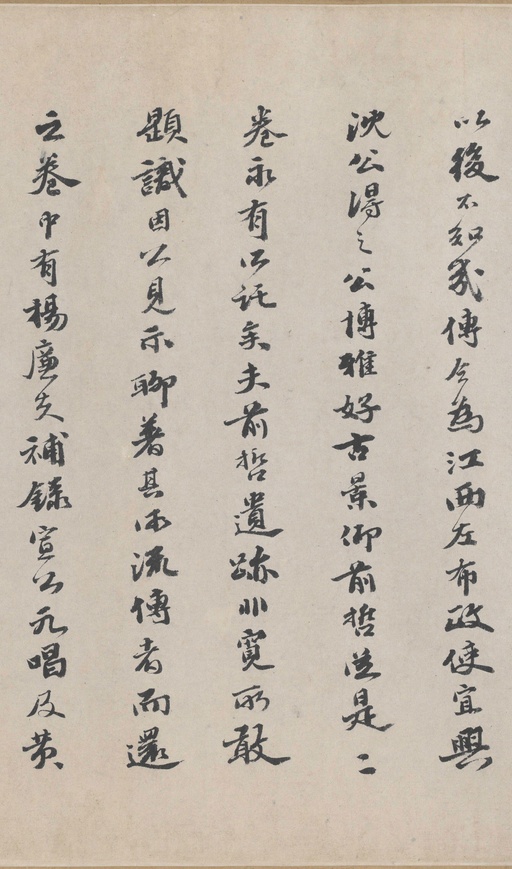 以後不知幾傳今為江西左布政使宜興
沈公得之公博雅好古景仰前哲從是二
卷永有所託矣夫前哲遺跡非寬所敢
題識因以見示聊著其所流傳者而還
之卷中有楊廉夫補錄宣公元唱及黄